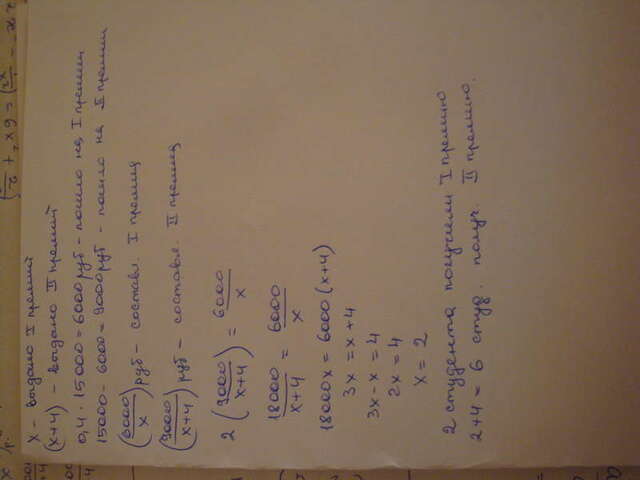 x - выдано I премий
(x+4) - выдано II премий
0,4 · 15000 = 6000 руб - пошло на I премии
15000 - 6000 = 9000 руб - пошло на II премии
(6000/x) руб - составл. I премия
(9000/x+4) руб - составл. II премия
2 (9000/x+4) = 6000/x
18000/x+4 = 6000/x
18000x = 6000 (x+4)
3x = x+4
3x - x = 4
2x = 4
x = 2
2 студента получили I премию
2+4 = 6 студ. получ. II премию.